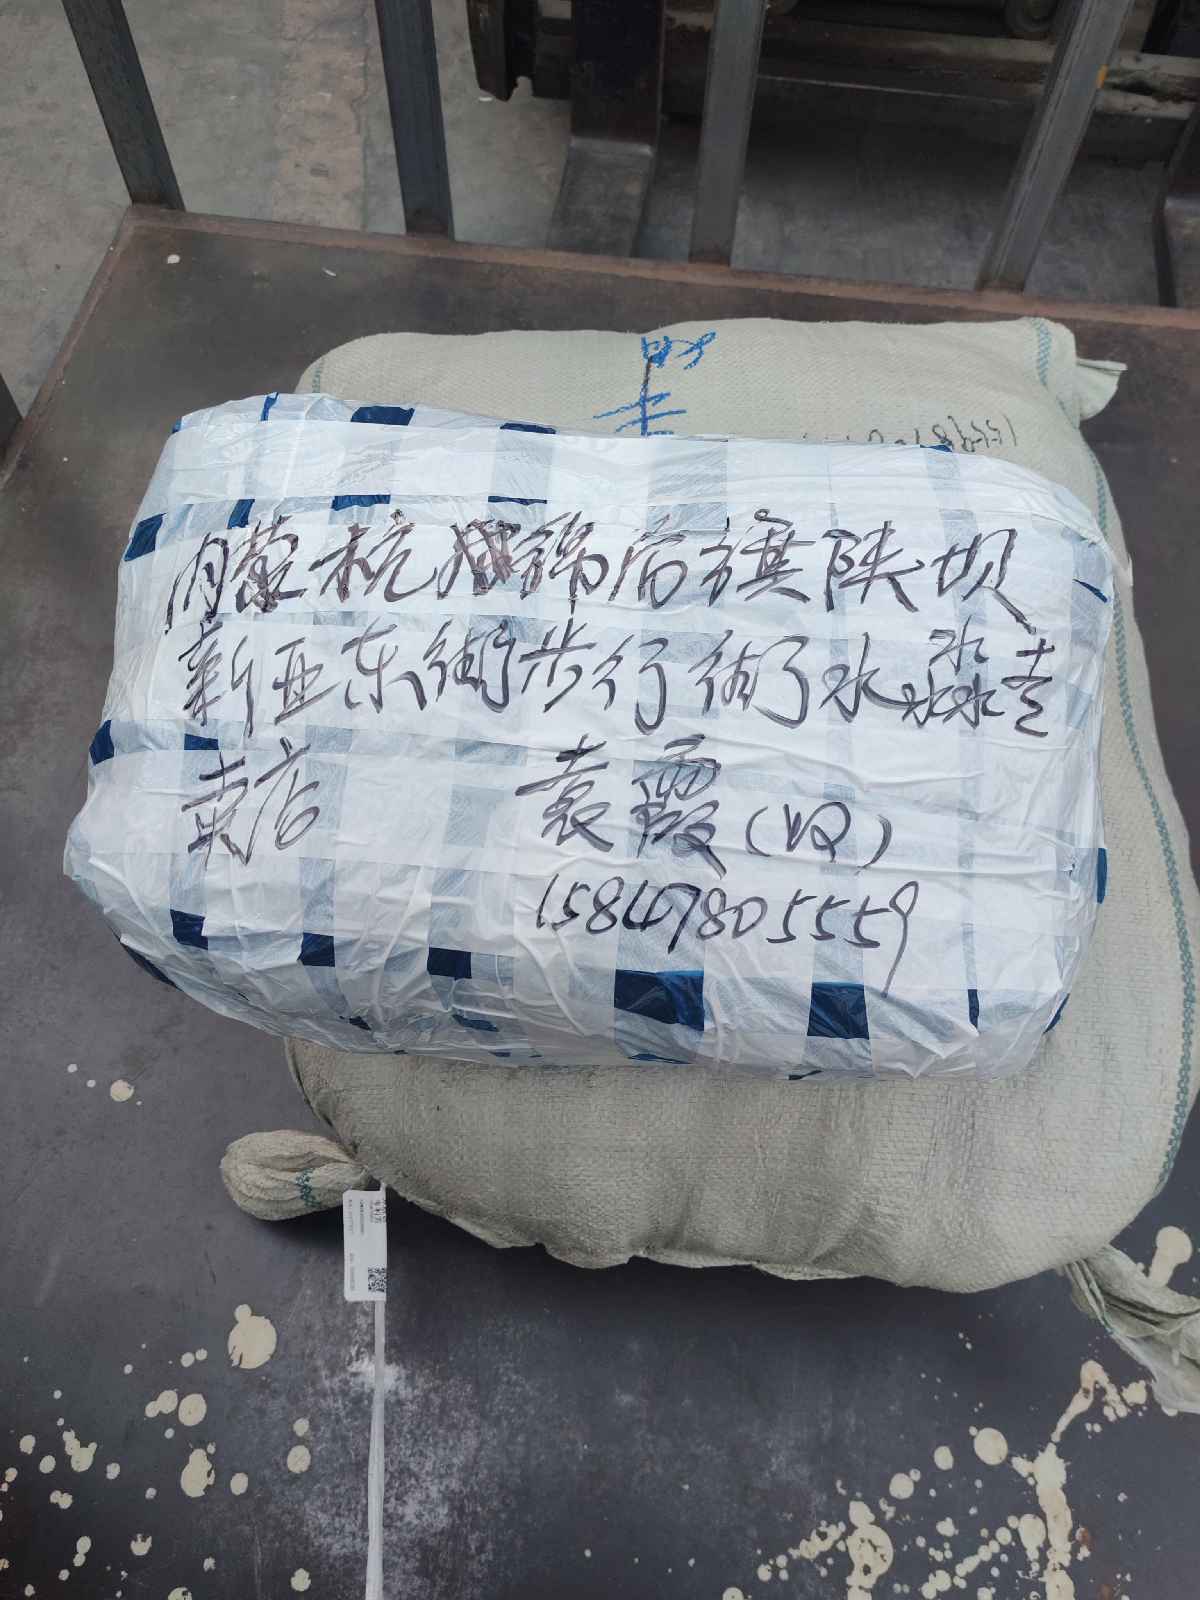 内蒙杭锦后旗陕坝
新亚东街步行街水淼专
卖店 袁霞(收)
15847805559